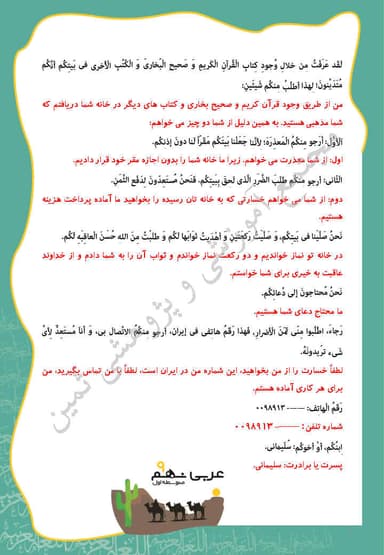 لقد عَرَفتُ مِن خلالِ وُجودِ کتابِ القُرآنِ الکَریمِ وَ صَحیحِ البُخاری وَ الکُتُبِ الاُخری فی بَیتِکُم أنَّکُم
مُتَدَیِّنونَ؛ لهذا أطلُبُ مِنکُم شَیئَینِ:
من از طریق وجود قرآن کریم و صحیح بخاری و کتاب های دیگر در خانه شما دریافتم که
شما مذهبی هستید. به همین دلیل از شما دو چیز می خواهم:
الأوَّلُ: أرجو مِنکُمُ المَعذِرَةَ؛ لِأنَّنا جَعَلنا بَیتَکُم مَقَرّاً لَنا دونَ إذنِکُم.
اول: از شما معذرت می خواهم. زیرا ما خانه شما را بدون اجازه مقر خود قرار دادیم.
الثّانی: أرجو مِنکُم طَلَبَ الضَّرَرِ الَّذی لَحِقَ بِبَیتِکُم، فَنَحنُ مُستَعِدّونَ لِدَفعِ الثَّمَنِ.
دوم: از شما می خواهم خسارتی که به خانه تان رسیده را بخواهید ما آماده پرداخت هزینه
هستیم.
نَحنُ صَلَّینا فی بَیتِکُم، وَ صَلَّیتُ رَکعَتَینِ وَ أهدَیتُ ثَوابَها لَکُم وَ طَلَبتُ مِنَ اللهِ حُسنَ العاقِبَهِ لَکُم.
در خانه تو نماز خواندیم و دو رکعت نماز خواندم و ثواب آن را به شما دادم و از خداوند
عاقبت به خیری برای شما خواستم.
نَحنُ مُحتاجونَ إلی دُعائِکُم.
ما محتاج دعای شما هستیم.
رَجاءً، اطلُبوا مِنّی ثَمَنَ الأضرارِ، فَهذا رَقمُ هاتِفی فی إیران، أرجو مِنکُمُ الاتِّصالَ بی، وَ أنا مُستَعِدٌّ لِأیِّ
شَیءٍ تُریدونَهُ.
لطفاً خسارت را از من بخواهید، این شماره من در ایران است، لطفاً با من تماس بگیرید، من
برای هر کاری آماده هستم.
رَقمُ الهاتِفِ: --------- ۰۰۹۸۹۱۳
شماره تلفن : --------- ۰۰۹۸۹۱۳
اِبنُکُم، أو أخوکُم: سُلَیمانی.
پسرت یا برادرت: سلیمانی.
عربی نهم ۹
متوسطه اول